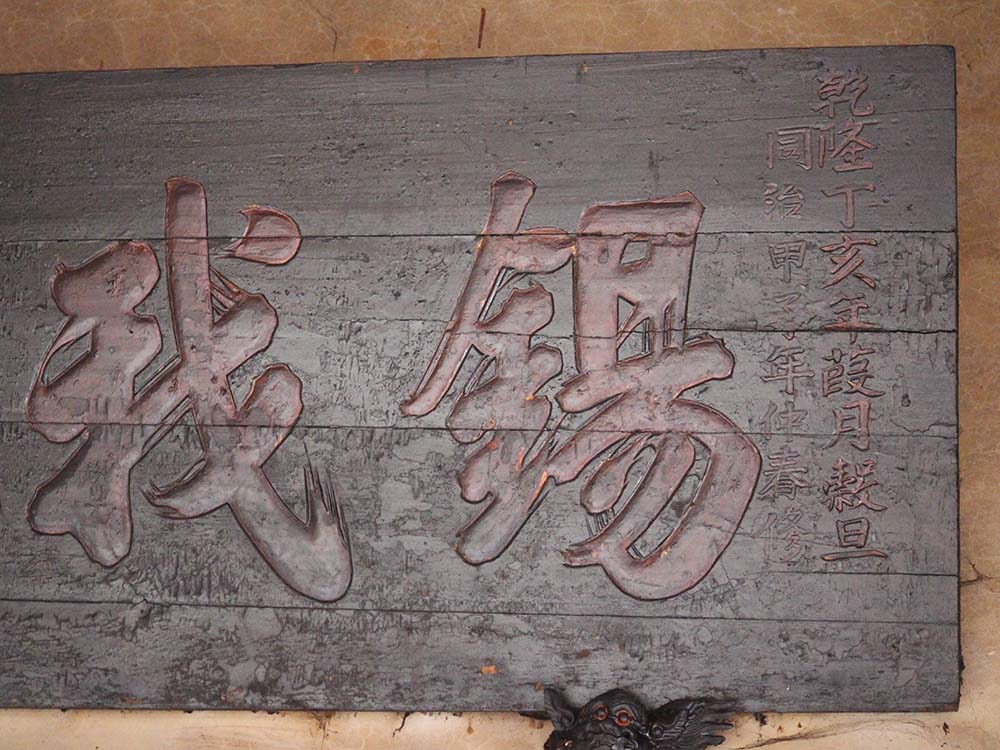 乾隆丁亥年葭月穀旦
同治甲子年仲春修
錫我